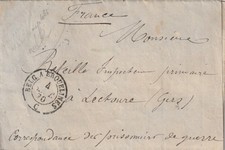 France
Monsieur
Bataille Inspecteur primaire
à Lectoure (Gers)
Correspondance des prisonniers de guerre
BELG. A ERQUELINES
4
C